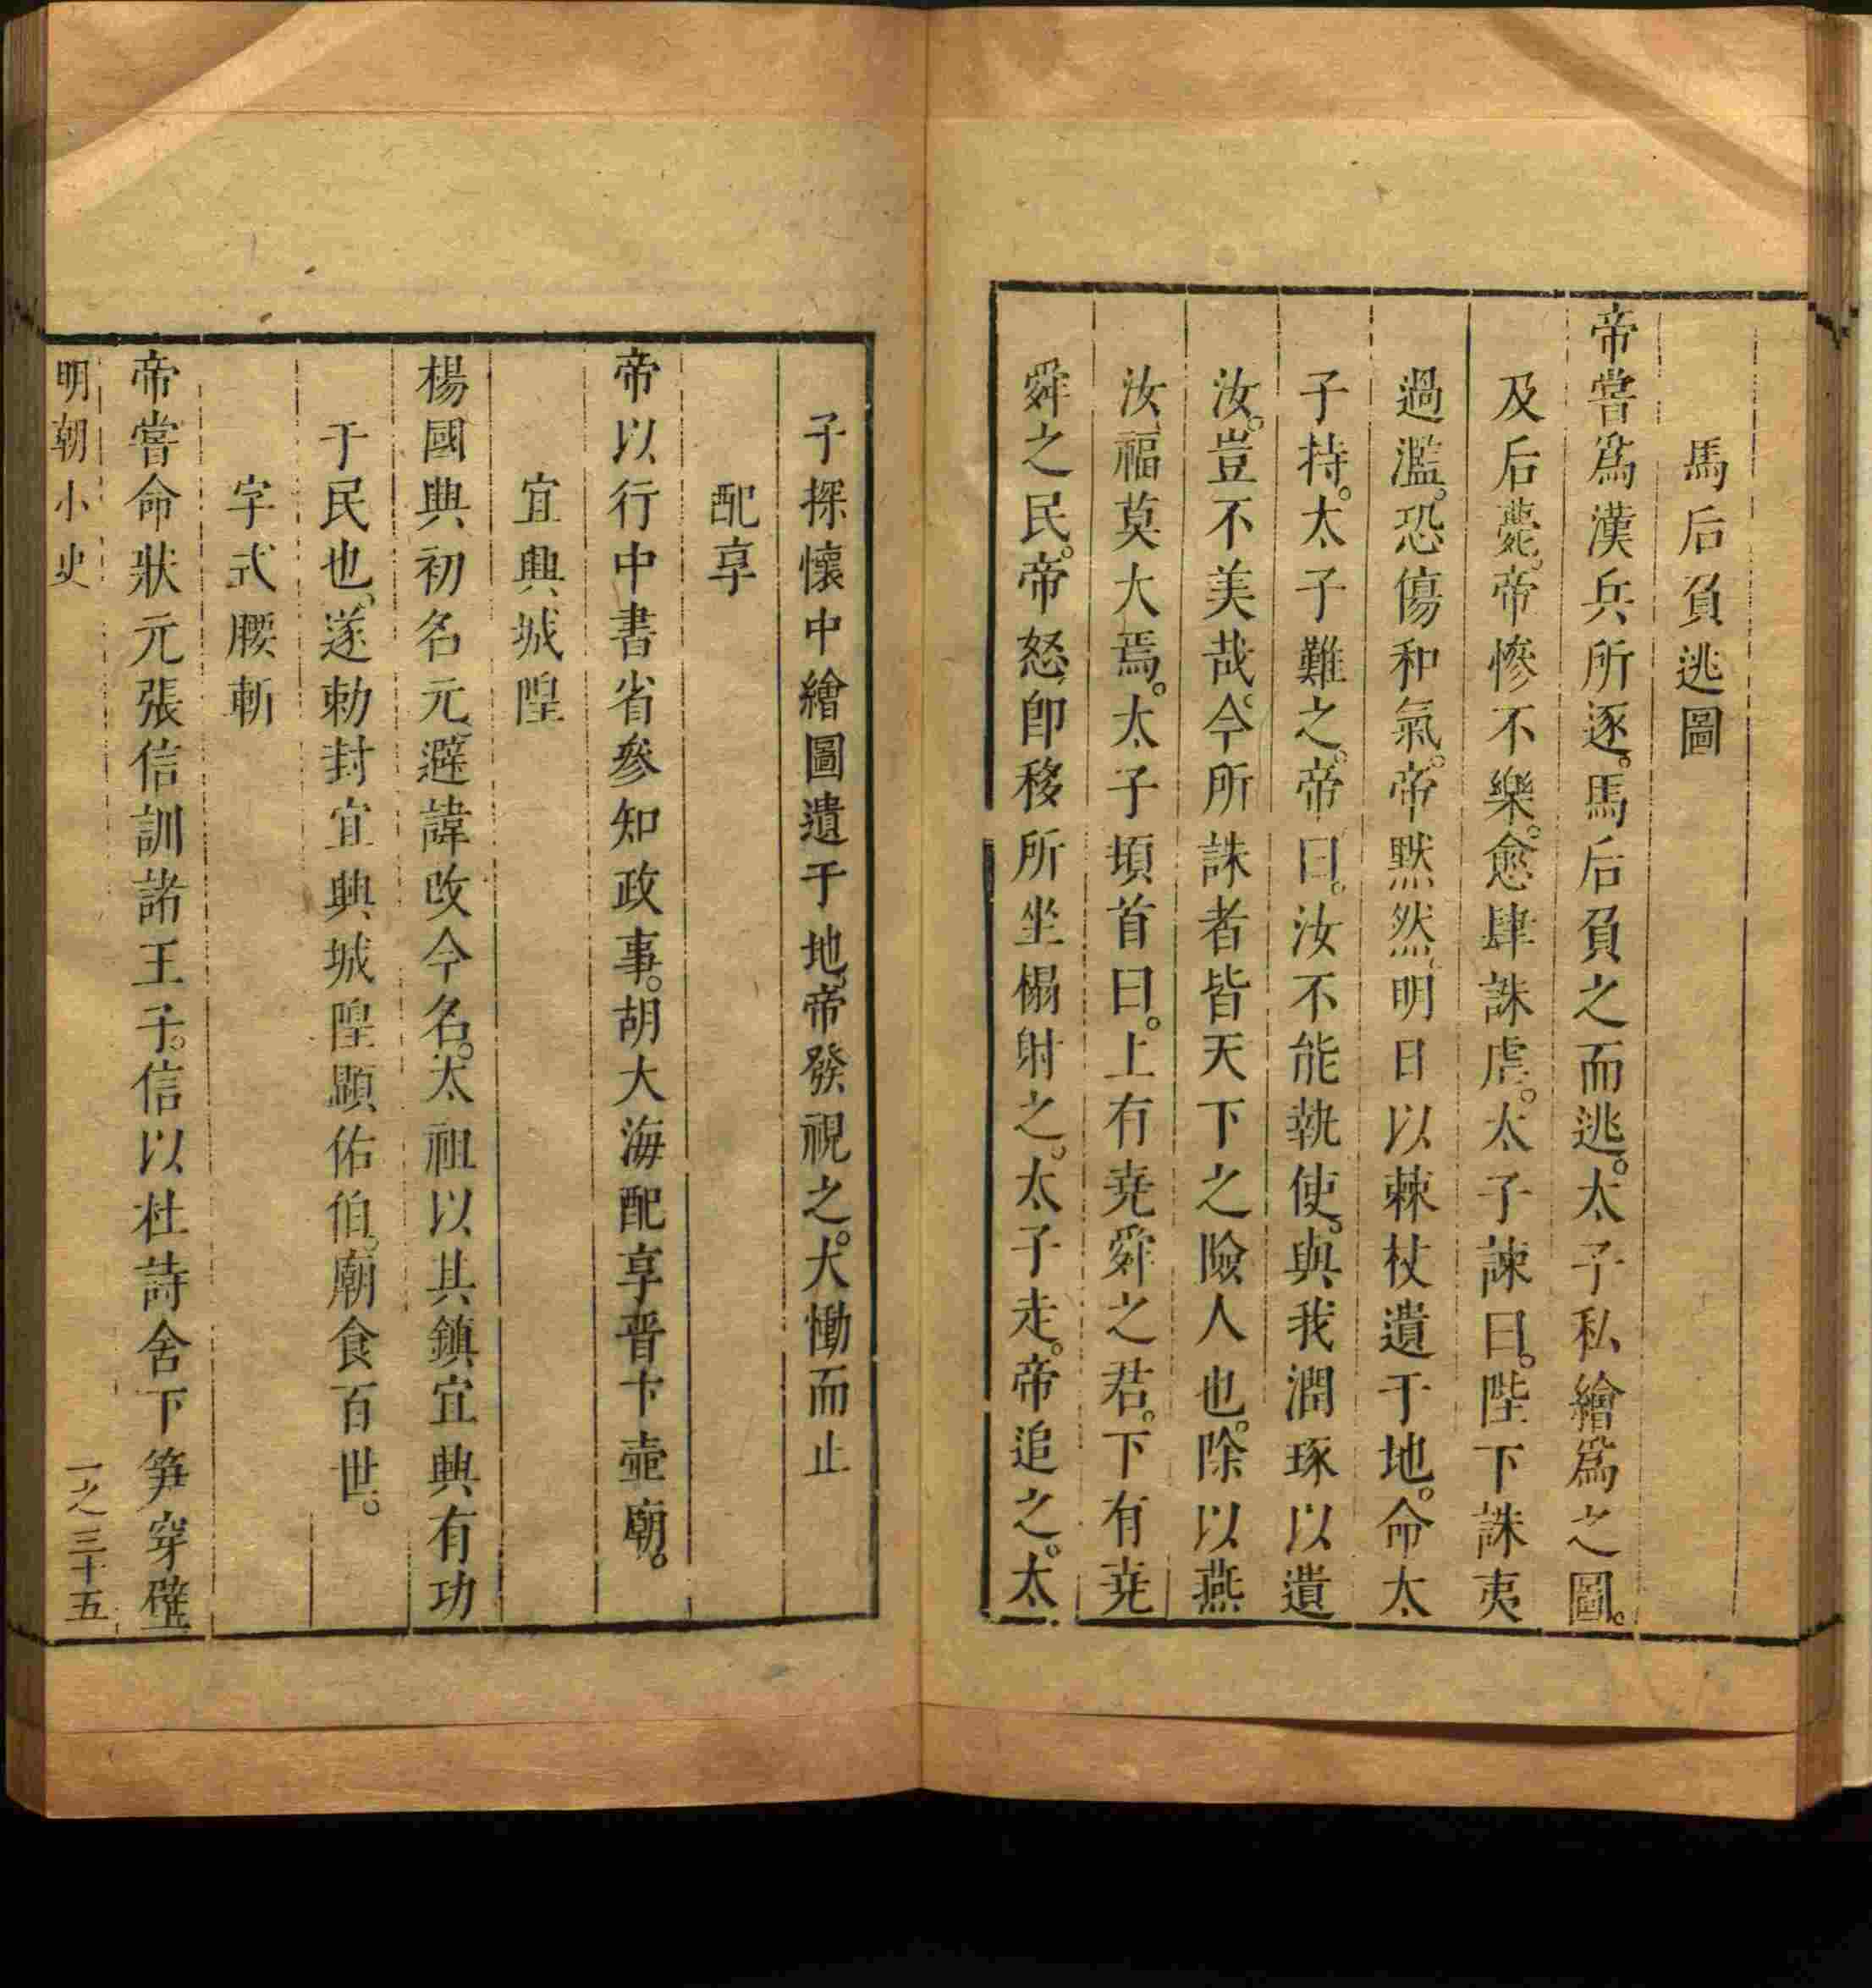 馬后負逃圖
帝嘗爲漢兵所逐。馬后負之而逃。太子私繪爲之圖。
及后薨。帝慘不樂。愈肆誅虐。太子諫曰。陛下誅夷
過濫。恐傷和氣。帝默然。明日以棘杖遺于地。命太
子持。太子難之。帝曰。汝不能執使。與我潤琢以遺
汝。豈不美哉。今所誅者皆天下之險人也。除以燕
汝。福莫大焉。太子頃首曰。上有堯舜之君。下有堯
舜之民。帝怒。卽移所坐榻射之。太子走。帝追之。太
子探懷中繪圖遺于地。帝發視之。大慟而止
配享
帝以行中書省參知政事。胡大海配享晋卞壺廟。
宜興城隍
楊國興初名元。避諱改今名。太祖以其鎮宜興有功
于民也。遂勅封宜興城隍顯佑伯。廟食百世。
字式腰斬
帝嘗命狀元張信訓諸王子。信以杜詩舍下笋穿壁
明朝小史
一之三十五